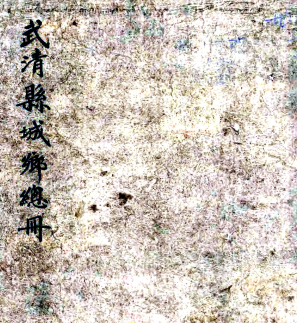 武清縣城鄉總冊